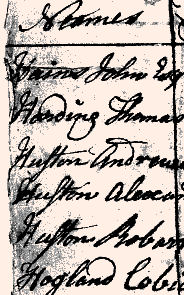 Names
Hains John Esq
Harding Thomas
Huston Andrew
Huston Alexan
Huston Robar
Hogland Cobu